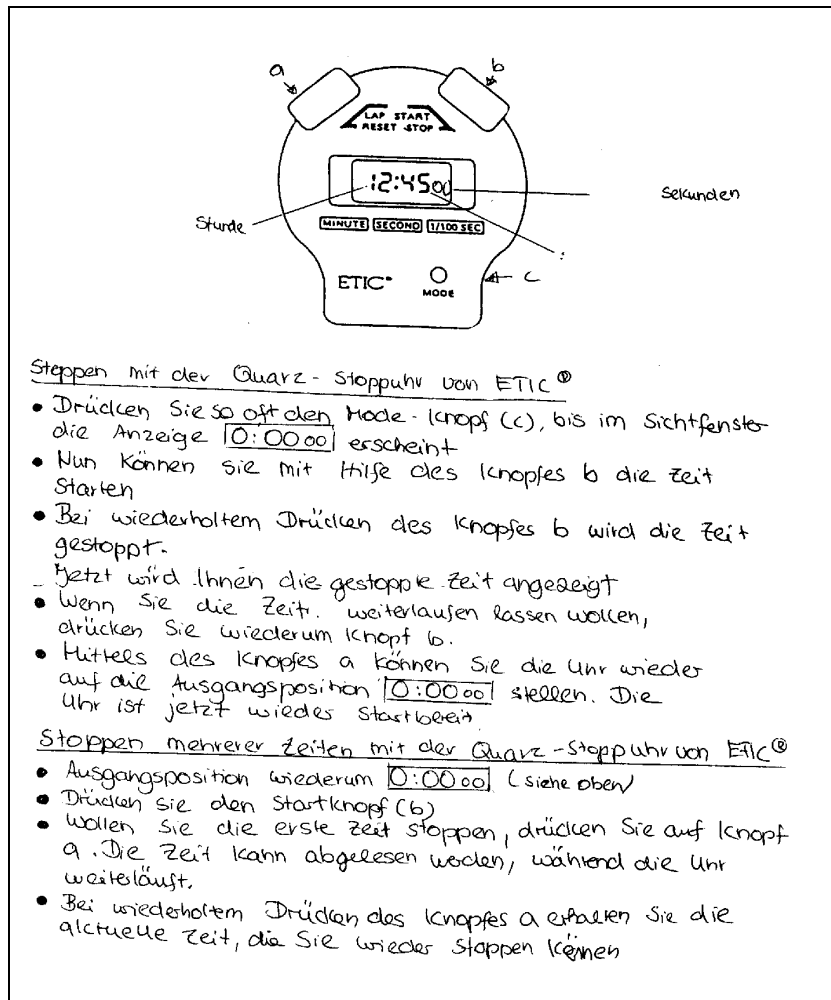 a
b
LAP START
RESET STOP
12:45 00
Sekunden
Stunde
MINUTE SECOND 1/100 SEC
:
ETIC
MODE
c
Stoppen mit der Quarz-Stoppuhr von ETIC®
• Drücken Sie so oft den Mode-Knopf (c), bis im Sichtfenster
die Anzeige 0:00 00 erscheint
• Nun können Sie mit Hilfe des Knopfes b die Zeit
starten
• Bei wiederholtem Drücken des Knopfes b wird die Zeit
gestoppt.
Jetzt wird Ihnen die gestoppte Zeit angezeigt
• Wenn Sie die Zeit. weiterlaufen lassen wollen,
drücken Sie wiederum Knopf b.
• Mittels des Knopfes a können Sie die Uhr wieder
auf die Ausgangsposition 0:00 00 stellen. Die
Uhr ist jetzt wieder startbereit
Stoppen mehrerer Zeiten mit der Quarz-Stoppuhr von ETIC®
• Ausgangsposition wiederum 0:00 00 (siehe oben)
• Drücken Sie den Startknopf (b)
• Wollen Sie die erste Zeit stoppen, drücken Sie auf Knopf
a. Die Zeit kann abgelesen werden, während die Uhr
weiterläuft.
• Bei wiederholtem Drücken des Knopfes a erhalten Sie die
aktuelle Zeit, die Sie wieder stoppen können